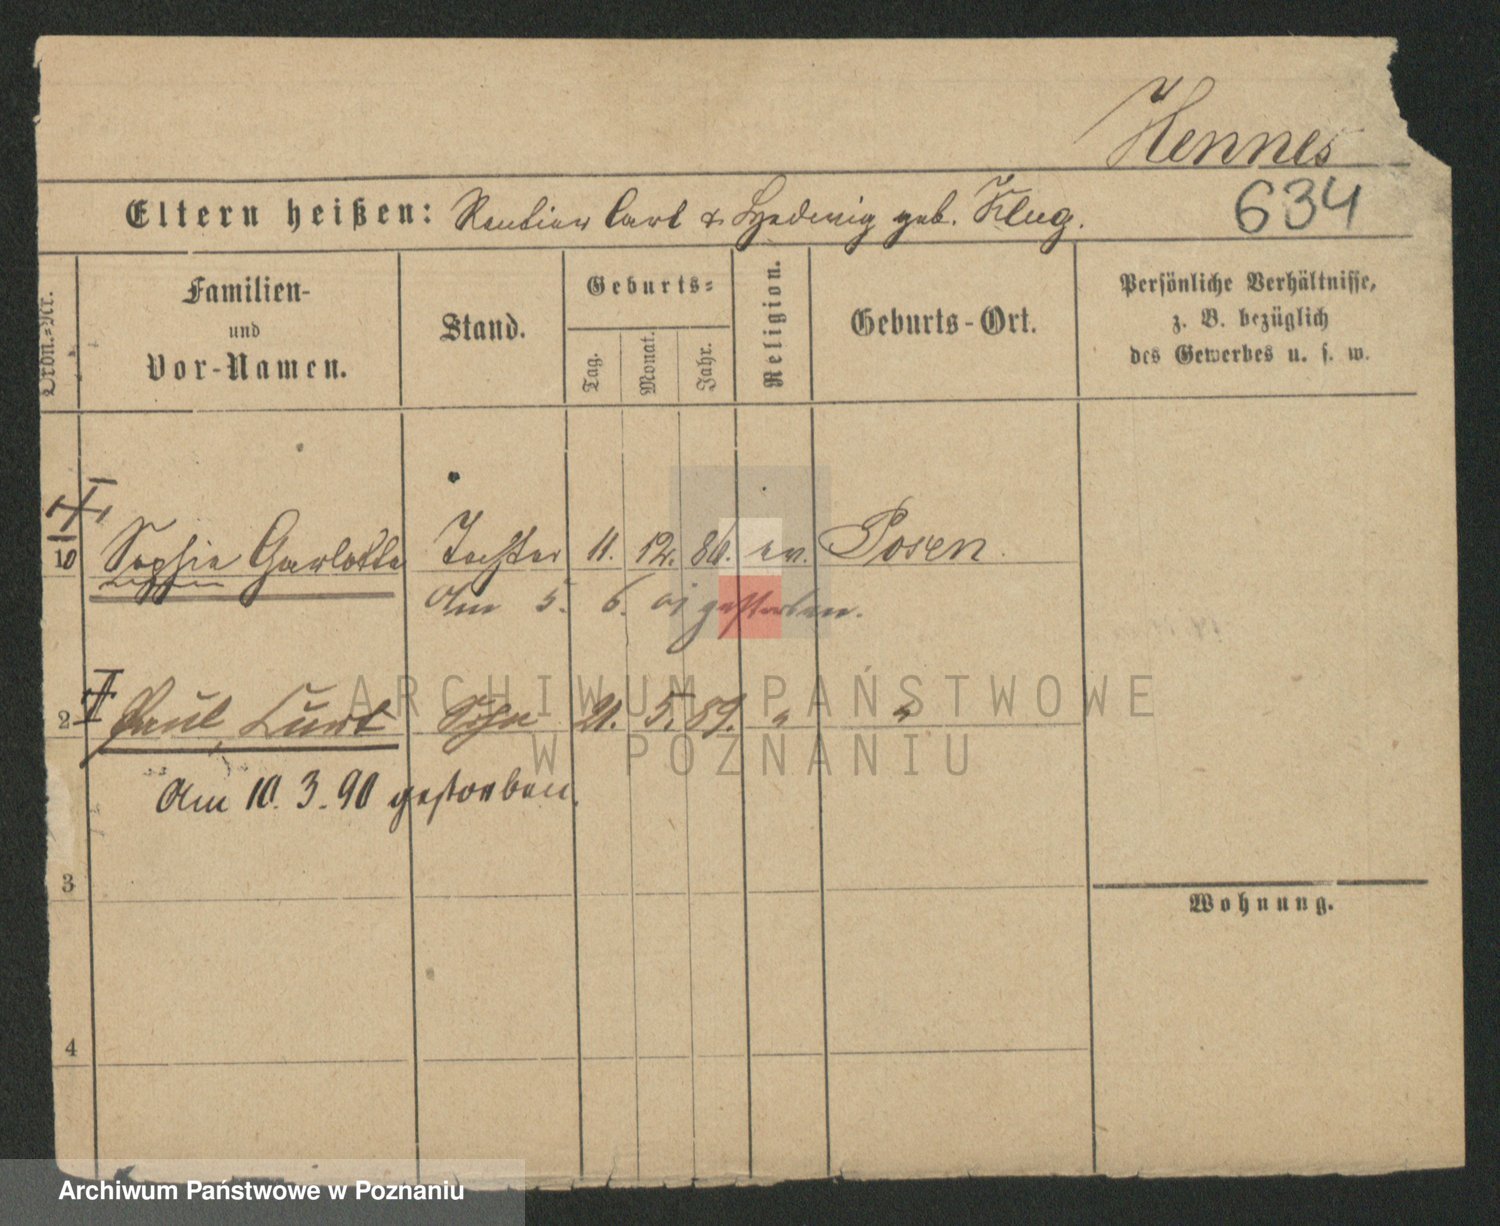 Hennes
634
Eltern heißen: Rentier Carl & Hedwig geb. Klug.
Ordn.=Nr.
Familien-
und
Vor-Namen.
Stand.
Geburts=
Tag.
Monat.
Jahr.
Religion.
Geburts-Ort.
Persönliche Verhältnisse,
z. B. bezüglich
des Gewerbes u. s. w.
10 Sophie Charlotte Tochter 11. 12. 86. ev. Posen.
Am 5. 6. gestorben.
2 Paul, Curt Sohn 21. 5. 89. " "
Am 10. 3. 90 gestorben.
3
Wohnung.
4
ARCHIWUM PAŃSTWOWE
W POZNANIU
Archiwum Państwowe w Poznaniu